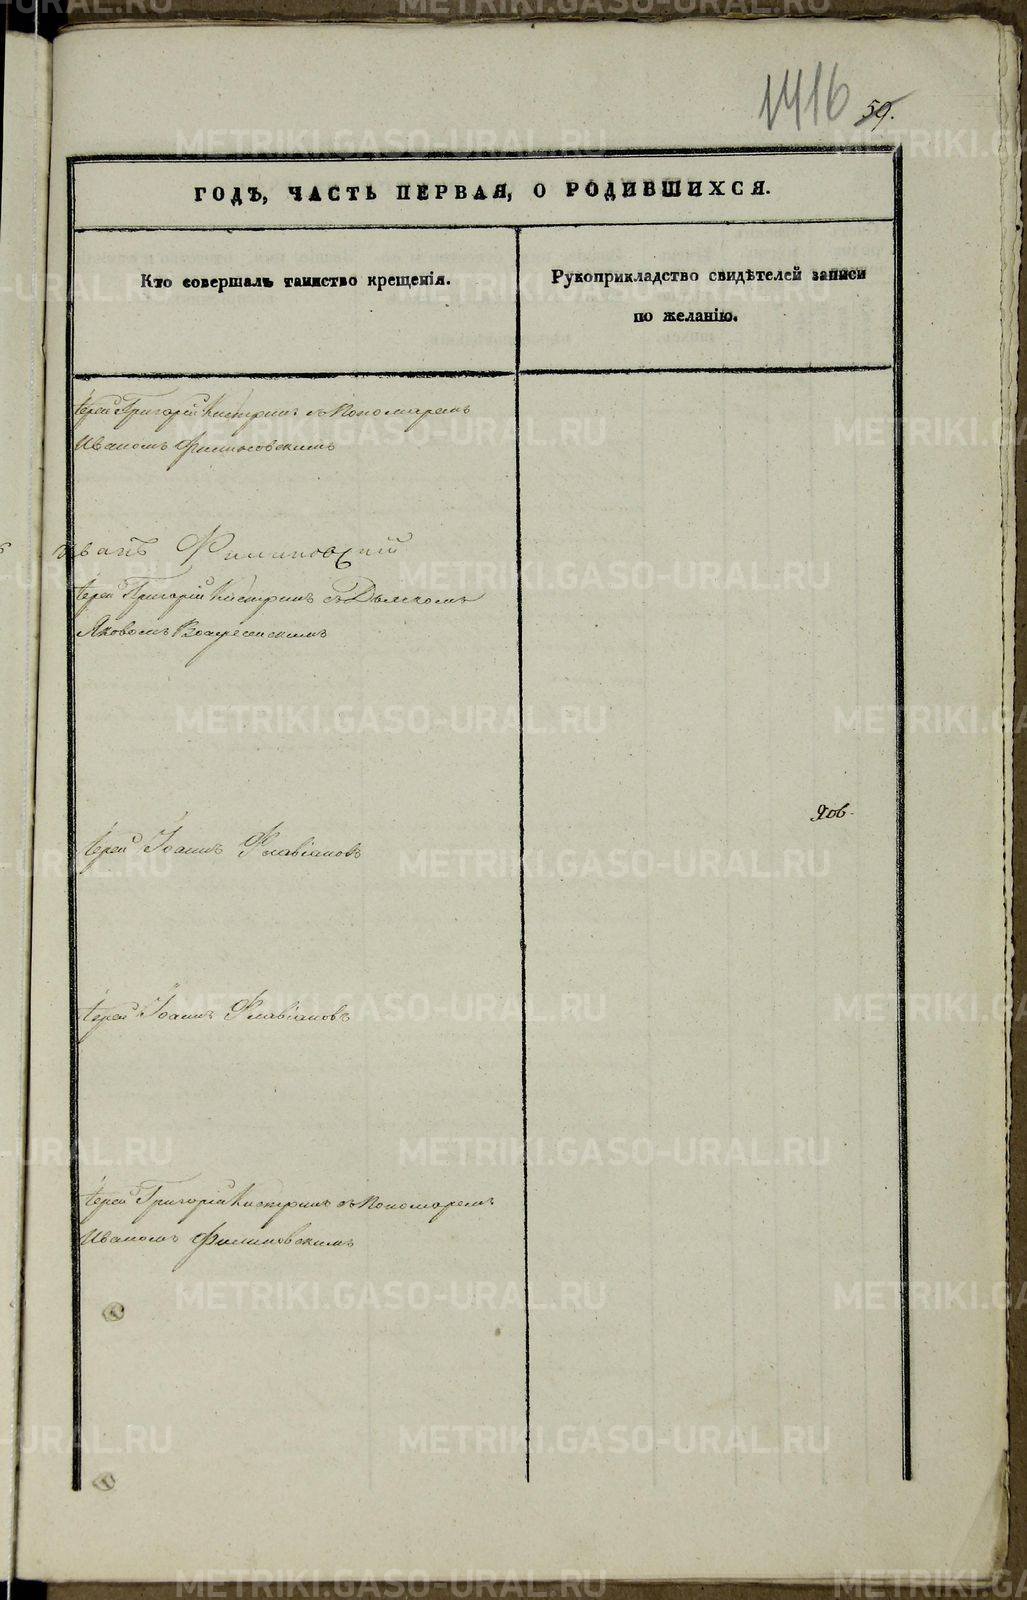 1416 59.
ГОДЪ, ЧАСТЬ ПЕРВАЯ, О РОДИВШИХСЯ.
Кто совершалъ таинство крещенія.
Рукоприкладство свидѣтелей записи
по желанію.
Іерей Григорій Кистринъ съ Пономаремъ
Иваномъ Филиповскимъ
Иванъ Филиповскій
Іерей Григорій Кистринъ съ Дьячкомъ
Яковомъ Воскресенскимъ
Іерей Іоаннъ Флавіановъ
Іерей Іоаннъ Флавіановъ
Іерей Григорій Кистринъ съ Пономаремъ
Иваномъ Филиповскимъ
METRIKI.GASO-URAL.RU